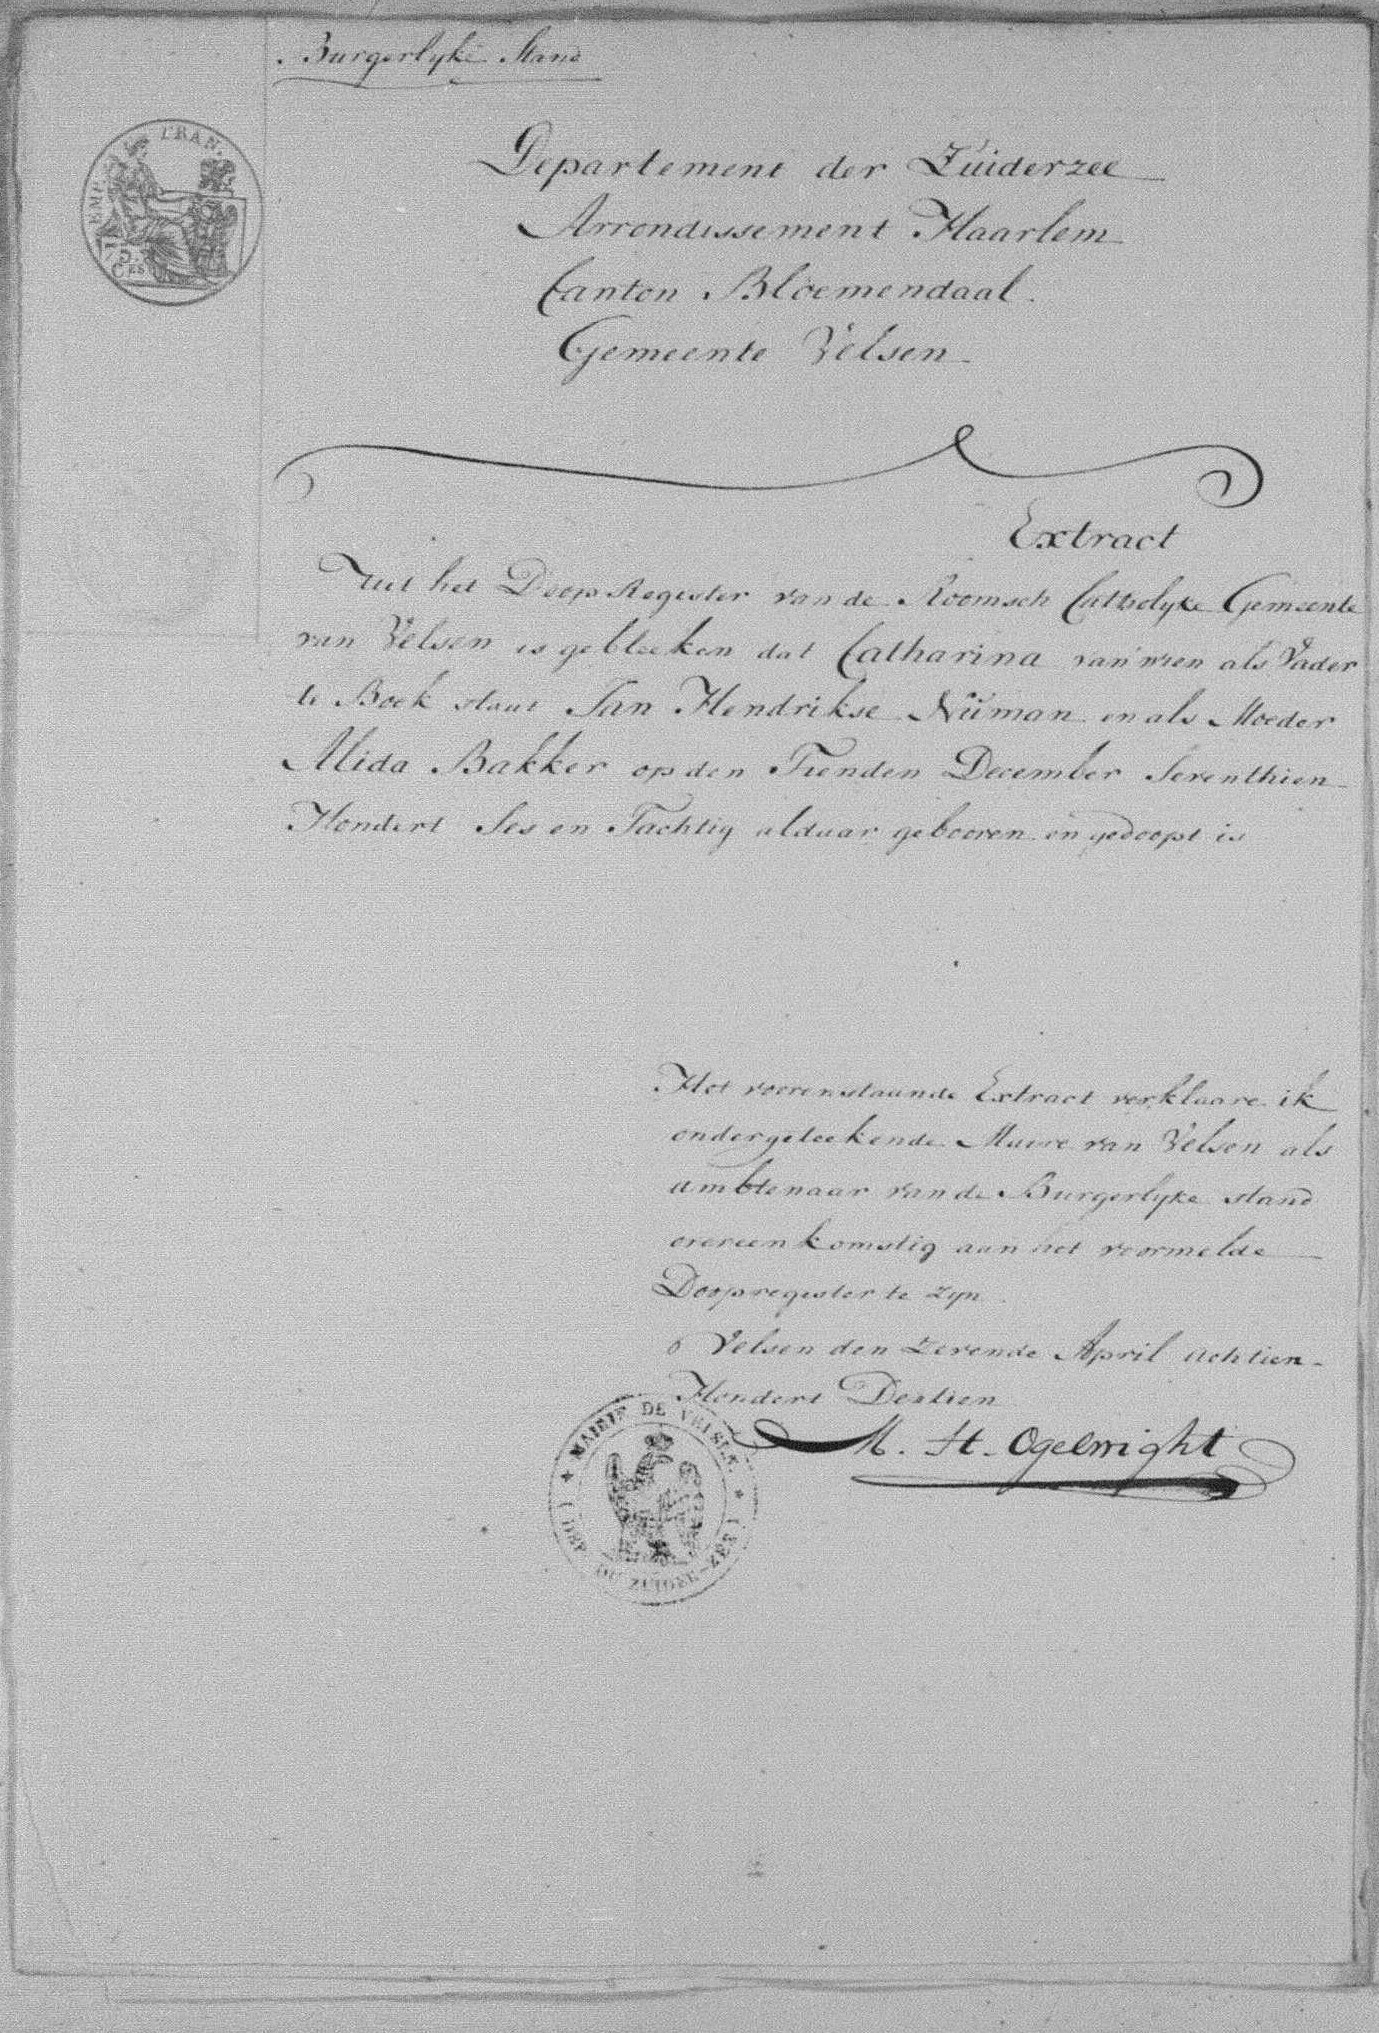 Burgerlyke Stand
EMPIRE FRAN.
75
CES
Departement der Zuiderzee
Arrondissement Haarlem
Canton Bloemendaal.
Gemeente Velsen
Extract
Uit het Doop Register van de Roomsch Catholyke Gemeente
van Velsen is gebleeken dat Catharina van wien als Vader
te Boek staat Jan Hendrikse Numan en als Moeder
Alida Bakker op den Tienden December Seventhien
Hondert Ses en Tachtig aldaar gebooren en gedoopt is
Het voorenstaande Extract verklaare ik
ondergeteekende Maire van Velsen als
ambtenaar van de Burgerlyke stand
overeenkomstig aan het voormelde
Doopregister te zyn
Velsen den zevende April achtien
Hondert Dertien
M. H. Ogelwight
MAIRIE DE VELSEN.
(DEP. DU ZUIDER-ZEE)